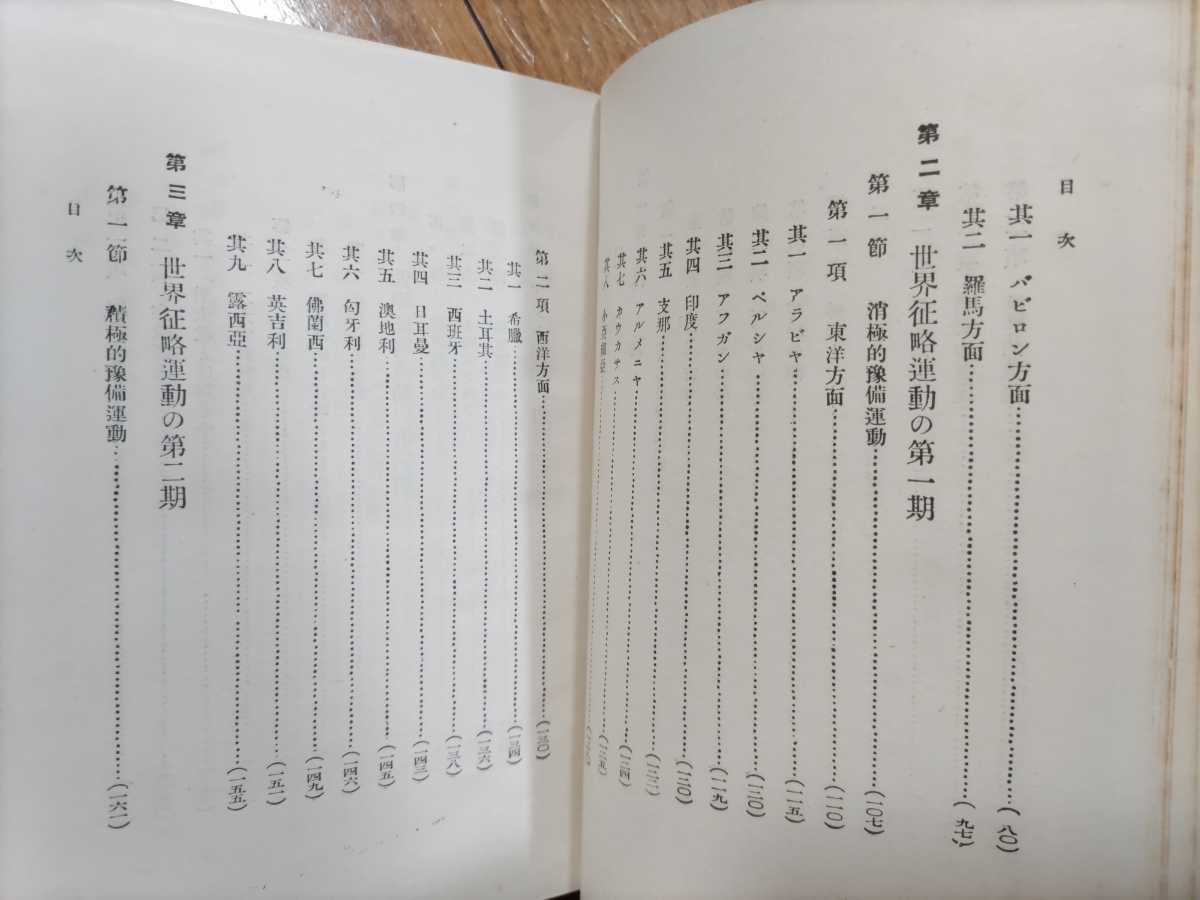 目次
其一 バビロン方面……(八〇)
其二 羅馬方面……(九七)
第二章 世界征略運動の第一期
第一節 消極的豫備運動……(一〇七)
第一項 東洋方面……(一一〇)
其一 アラビヤ……(一一五)
其二 ペルシヤ……
其三 アフガン……(一一九)
其四 印度……(一二〇)
其五 支那……(一二二)
其六 アルメニヤ……(一二四)
其七 カウカサス……(一二五)
其八 小亞細亞……
第二項 西洋方面……(一三〇)
其一 希臘……(一三四)
其二 土耳其……(一三六)
其三 西班牙……(一三八)
其四 日耳曼……(一四三)
其五 澳地利……(一四五)
其六 匈牙利……(一四六)
其七 佛蘭西……(一四九)
其八 英吉利……(一五一)
其九 露西亞……(一五五)
第三章 世界征略運動の第二期
第一節 積極的豫備運動……(一六一)
目次